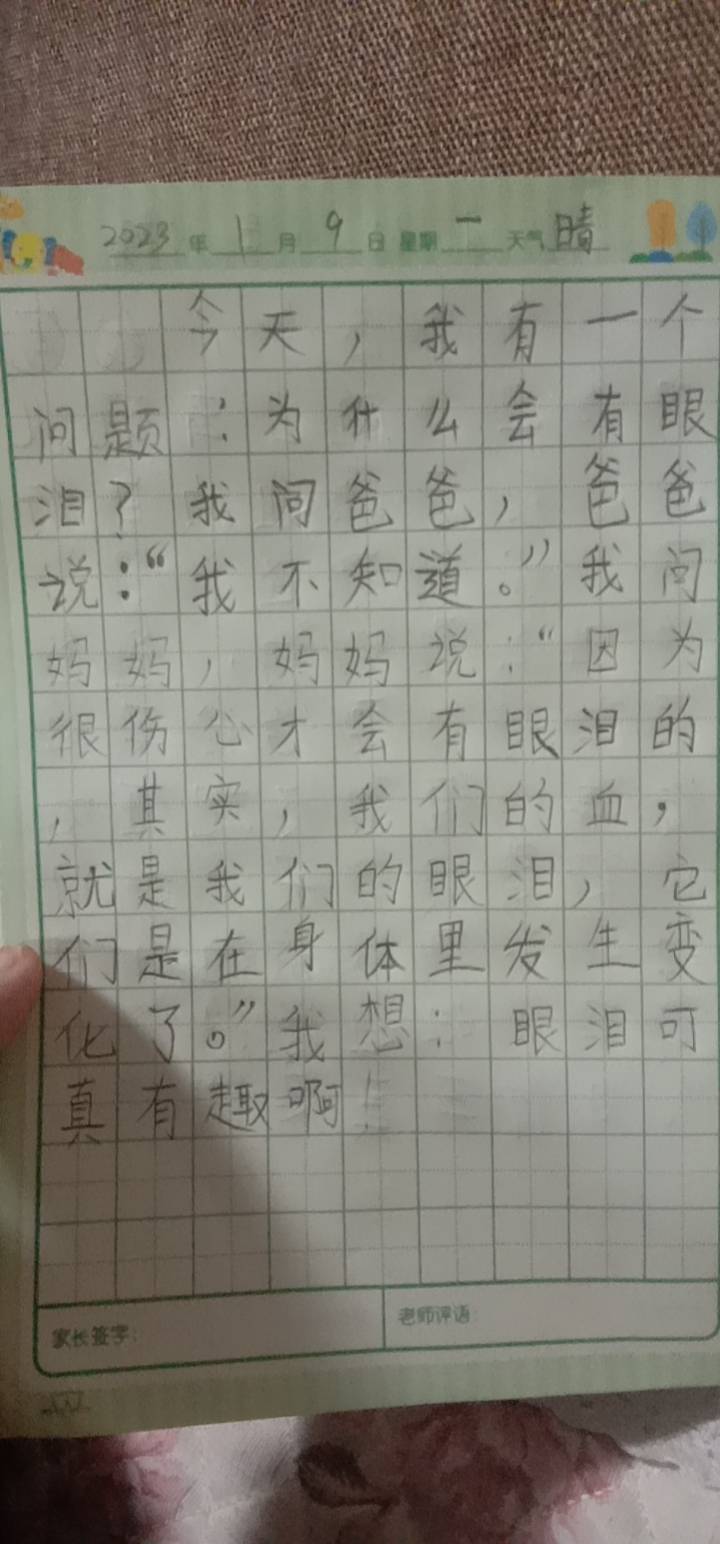 2023年1月9日 星期一 天气晴
今天，我有一个
问题：为什么会有眼
泪？我问爸爸，爸爸
说：“我不知道。”我问
妈妈，妈妈说：“因为
很伤心才会有眼泪的
，其实，我们的血，
就是我们的眼泪，它
们是在身体里发生变
化了。”我想：眼泪可
真有趣啊！
家长签字：
老师评语：